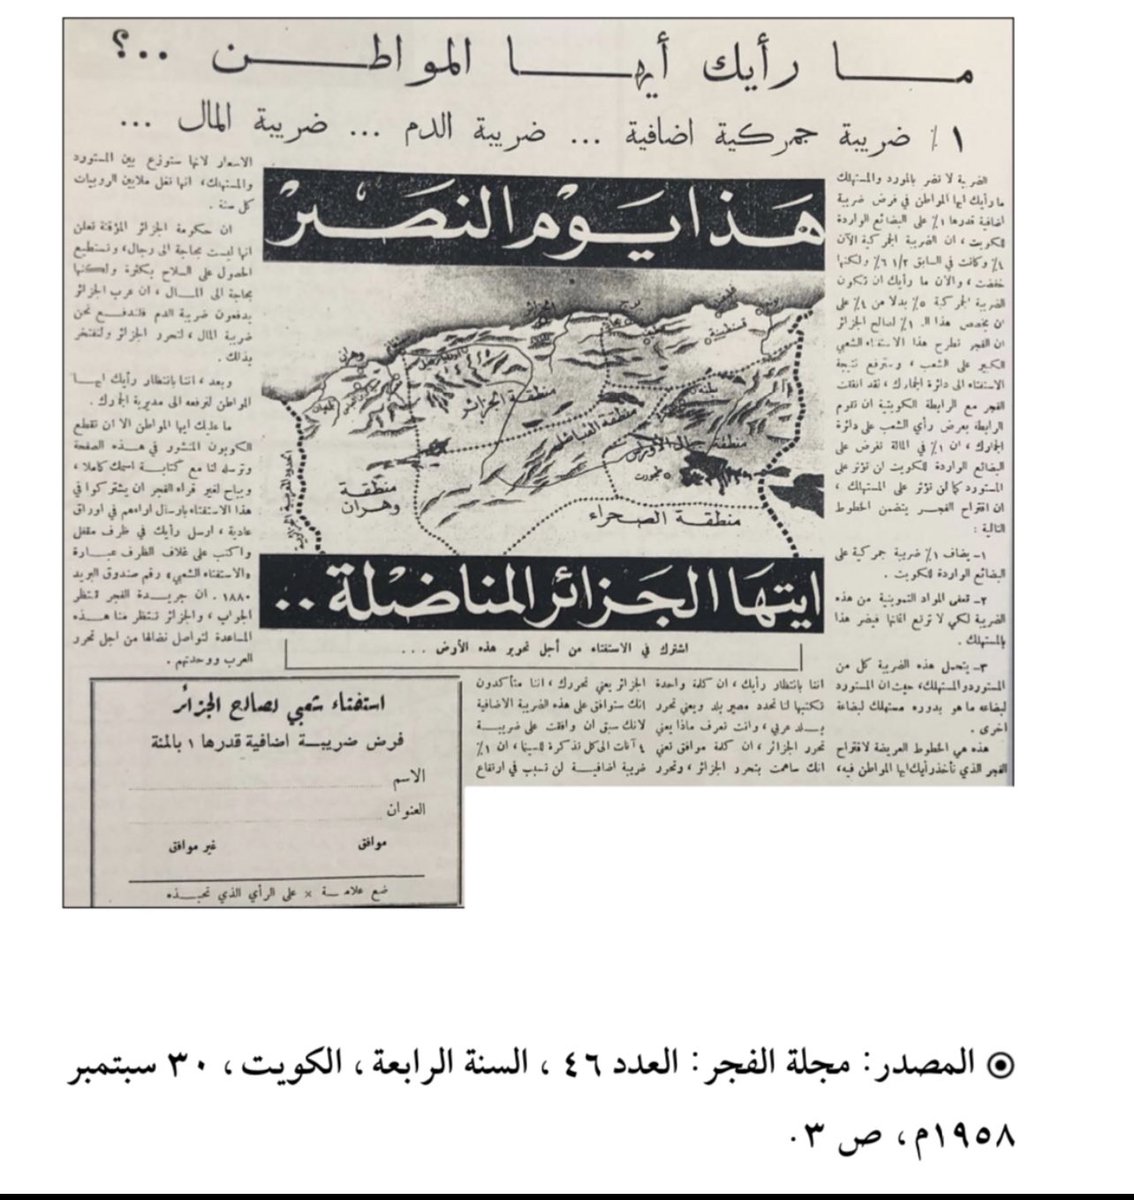 ما رأيك أيها المواطن ..؟
١٪ ضريبة جمركية اضافية ... ضريبة الدم ... ضريبة المال ...
الضريبة لا تضر بالمورد والمستهلك
ما رأيك ايها المواطن في فرض ضريبة
اضافية قدرها ١٪ على البضائع الواردة
للكويت ، ان الضريبة الجمركية الآن
٤٪ وكانت في السابق ١/٢ ٦٪ ولكنها
خفضت ، والان ما رأيك ان تكون
الضريبة الجمركية ٥٪ بدلا من ٤٪ على
ان يخصص هذا الـ ١٪ لصالح الجزائر
ان الفجر تطرح هذا الاستفتاء الشعبي
الكبير على الشعب ، وسترفع نتيجة
الاستفتاء الى دائرة الجمارك ، لقد اتفقت
الفجر مع الرابطة الكويتية ان تقوم
الرابطة بعرض رأي الشعب على دائرة
الجمارك ، ان ١٪ في المائة تفرض على
البضائع الواردة للكويت لن تؤثر على
المستورد كما لن تؤثر على المستهلك ،
ان اقتراح الفجر يتضمن الخطوط
التالية :
١ــ يضاف ١٪ ضريبة جمركية على
البضائع الواردة للكويت .
٢ــ تعفى المواد التموينية من هذه
الضريبة لكي لا ترتفع اثمانها فيضر هذا
بالمستهلك .
٣ــ يتحمل هذه الضريبة كل من
المستورد والمستهلك، حيث ان المستورد
لبضاعة ما هو بدوره مستهلك لبضاعة
اخرى .
هذه هي الخطوط العريضة لاقتراح
الفجر الذي نأخذ رأيك ايها المواطن فيه،
هَذا يَوْم النصَر
الجزائر
برج
قسنطينة
وهران
تلمسان
منطقة الجزائر
منطقة
وهران
منطقة الصحراء
ايتها الجَزائر المناضلة ..
اشترك في الاستفتاء من أجل تحرير هذه الأرض ...
اننا بانتظار رأيك ، ان كلمة واحدة
تكتبها لنا تحدد مصير بلد ويعني تحرر
بلد عربي ، وانت تعرف ماذا يعني
تحرر الجزائر ، ان كلمة موافق تعني
انك ساهمت بتحرر الجزائر ، وتحرر
الجزائر يعني تحررك ، اننا متأكدون
انك ستوافق على هذه الضريبة الاضافية
لانك سبق ان وافقت على ضريبة
٤ آنات الى كل تذكرة للسينما ، ان ١٪
ضريبة اضافية لن تسبب في ارتفاع
الاسعار لانها ستوزع بين المستورد
والمستهلك، انها تغل ملايين الروبيات
كل سنة .
ان حكومة الجزائر المؤقتة تعلن
انها ليست بحاجة الى رجال، وتستطيع
الحصول على السلاح بكثرة ولكنها
بحاجة الى المــال ، ان عرب الجزائر
يدفعون ضريبة الدم فلندفع نحن
ضريبة المال ، لتحرر الجزائر ولنفتخر
بذلك .
وبعد ، اننا بانتظار رأيك ايها
المواطن لنرفعه الى مديرية الجمارك .
ما عليك ايها المواطن الا ان تقطع
الكوبون المنشور في هذه الصفحة
وترسله لنا مع كتابة اسمك كاملا ،
ويباح لغير قراء الفجر ان يشتركوا في
هذا الاستفتاء بارسال اراءهم في اوراق
عادية ، ارسل رأيك في ظرف مقفل
واكتب على غلاف الظرف عبارة
«الاستفتاء الشعبي» رقم صندوق البريد
١٨٨٠ . ان جريدة الفجر تنتظر
الجواب ، والجزائر تنتظر منا هذه
المساعدة لتواصل نضالها من اجل تحرر
العرب ووحدتهم .
استفتاء شعبي لصالح الجزائر
فرض ضريبة اضافية قدرها ١ بالمئة
الاسم
العنوان
موافق غير موافق
ضع علامة × على الرأي الذي تحبذه
المصدر: مجلة الفجر: العدد ٤٦ ، السنة الرابعة ، الكويت ، ٣٠ سبتمبر
١٩٥٨م ، ص ٠٣